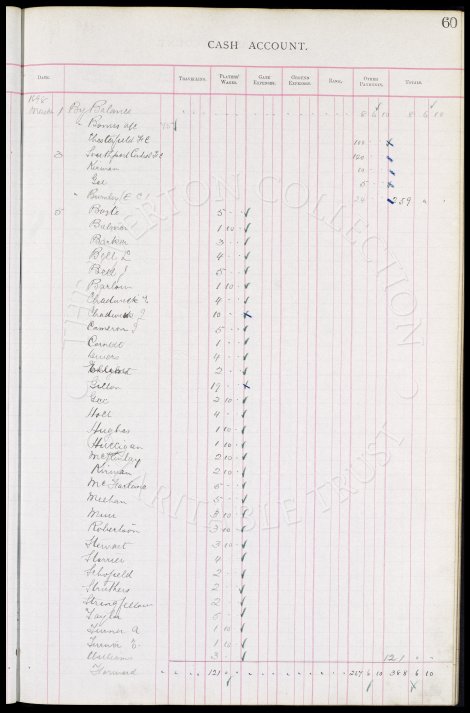 60
CASH ACCOUNT.
DATE. TRAVELLING. PLAYERS' WAGES. GATE EXPENSES. GROUND EXPENSES. BANK. OTHER PAYMENTS. TOTALS.
1898
March 1 By Balance 8 6 10 8 6 10
" Bonus a/c
Chesterfield F C 100
3 Southport Central F C 120
Kirwan 10
Gee 5
" Burnley F C 24 259
5 Barte 5
Balmer 1 10
Barker 3
Bell L 4
Bell J 5
Barlow 1 10
Chadwick E 4
Chadwick J 10
Cameron J 5
Cornett 1
Divers 4
2
Gillon 17
Gee 2 10
Holt 4
Hughes 1 10
Hulligan 1 10
McKinlay 2 10
Kirwan 2 10
McFarlane 5
Meehan 5
Muir 3 10
Robertson 3 10
Stewart 3 10
Storrier 4
Schofield 2
Struthers 2
Stringfellow 2
Taylor 5
Turner A 1 10
Turner E 1 10
Williams 3
121
Forward 121 267 6 10 388 6 10
THE EVERTON COLLECTION CHARITABLE TRUST